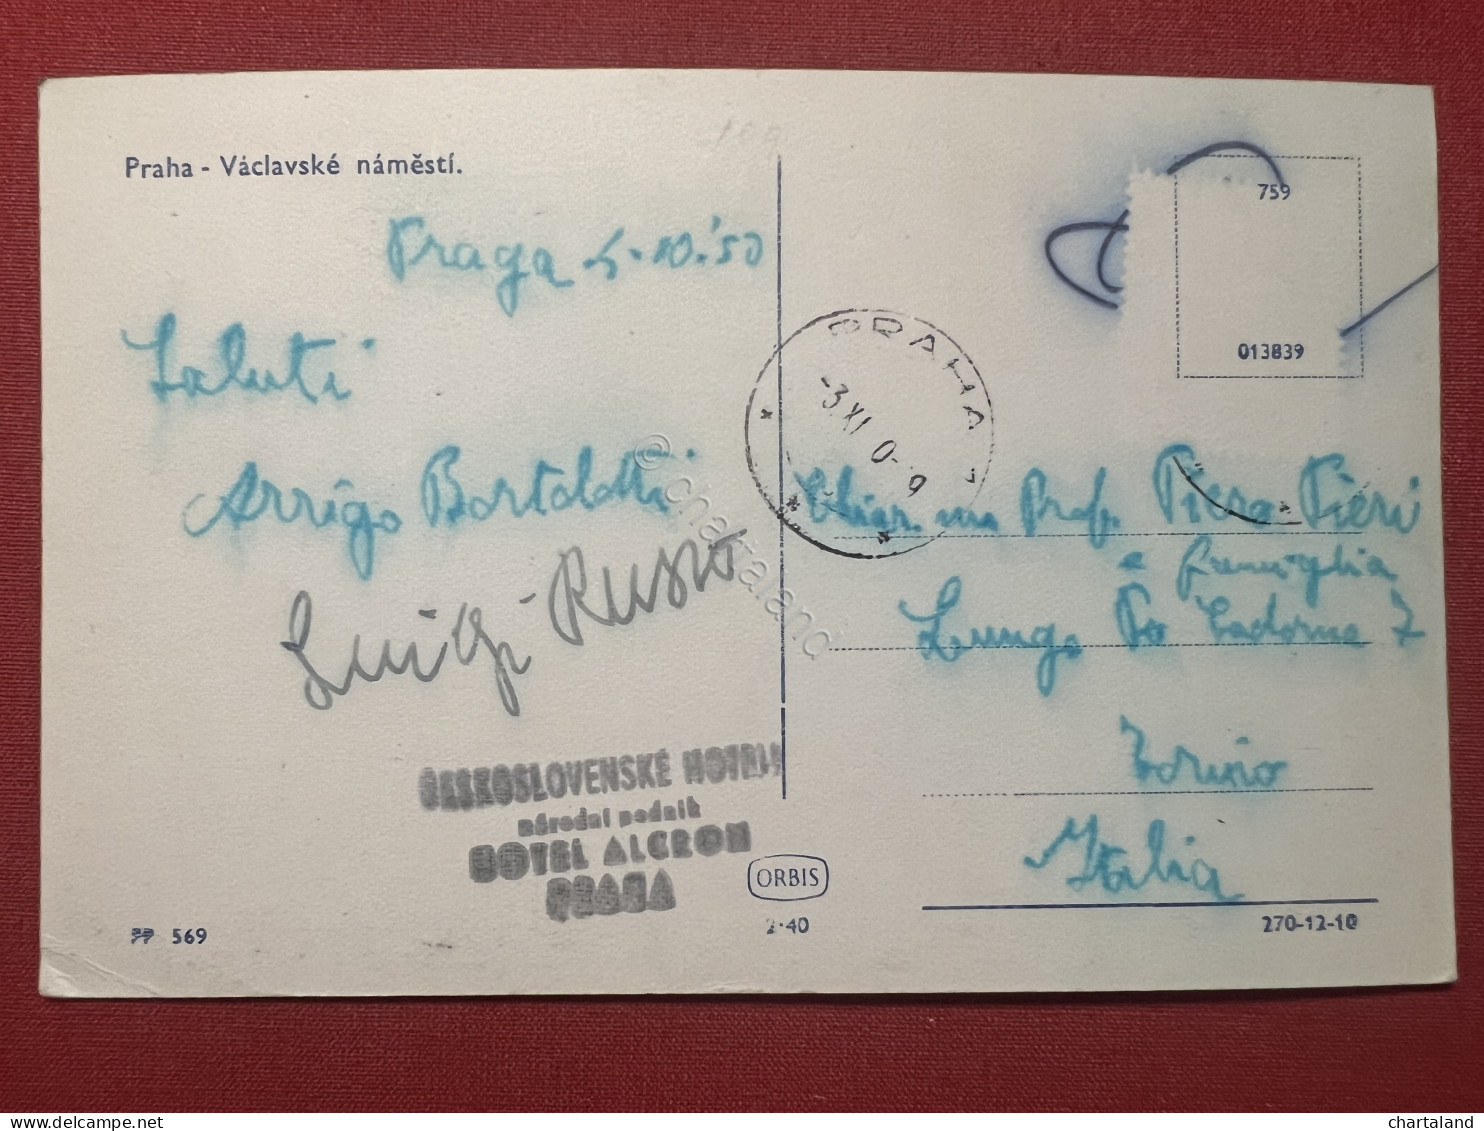 Praha - Václavské náměstí.
Praga 5-10-'50
Saluti
Arrigo Bortolotti
Luigi Russo
ČESKOSLOVENSKÉ HOTELY
národní podnik
HOTEL ALCRON
PRAHA
569
ORBIS
2·40
759
013839
PRAHA
-3.XI
Prof. Piero Pieri
e famiglia
Lungo Po Cadorna 7
Torino
Italia
270-12-10
© chartaland
delcampe.net
chartaland